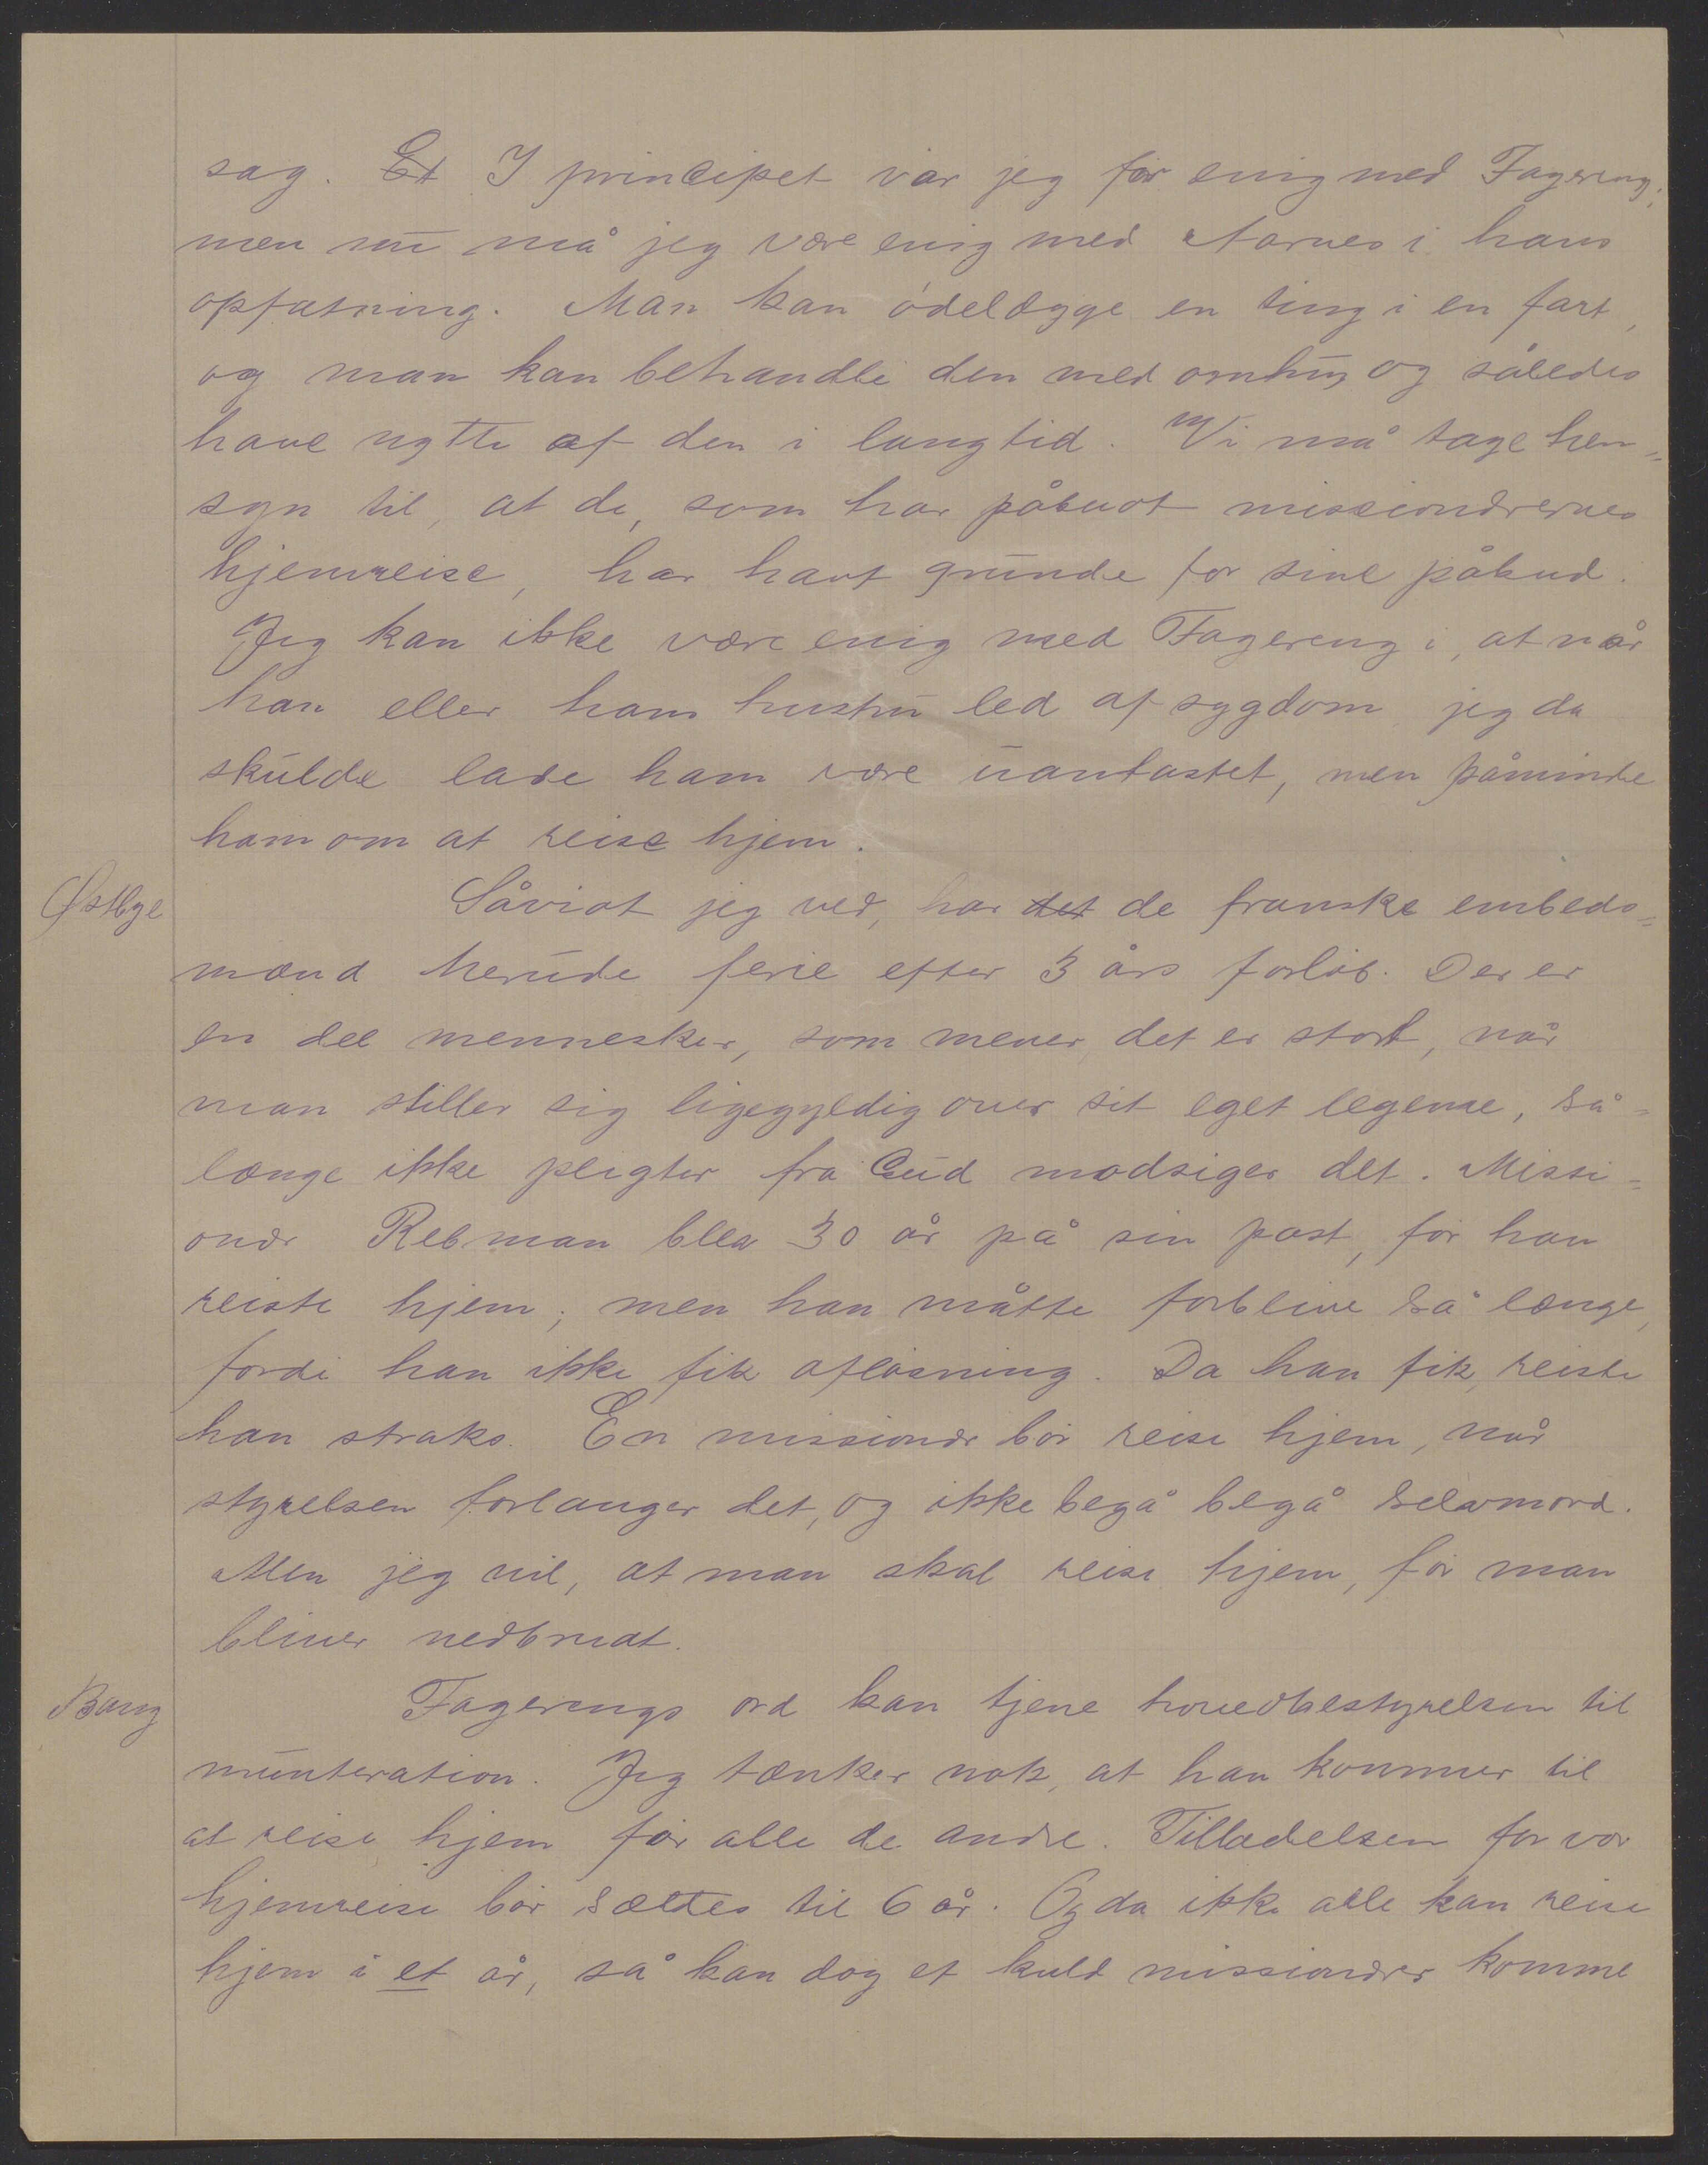 sag. Et I principet var jeg før enig med Fagereng;
men nu må jeg være enig med Aarnes i hans
opfatning. Man kan ødelægge en ting i en fart,
og man kan behandle den med omhu og således
have nytte af den i lang tid. Vi må tage hen=
syn til, at de, som har påbudt missionærernes
hjemreise, har havt grunde for sine påbud.
Jeg kan ikke være enig med Fagereng i, at når
han eller hans hustru led af sygdom jeg da
skulde lade ham være uantastet, men påminde
ham om at reise hjem.
Østbye
Såvidt jeg ved, har det de franske embeds=
mænd herude ferie efter 3 års forløb. Der er
en del mennesker, som mener, det er stort, når
man stiller sig ligegyldig over sit eget legeme, så=
længe ikke pligter fra Gud modsiger det. Missi=
onær Rebman blev 30 år på sin post, før han
reiste hjem; men han måtte forblive så længe,
fordi han ikke fik afløsning. Da han fik, reiste
han straks. En missionær bør reise hjem, når
styrelsen forlanger det, og ikke begå begå selvmord.
Men jeg vil, at man skal reise hjem, før man
bliver nedbrudt.
Bang
Fagerengs ord kan tjene hovedbestyrelsen til
munteration. Jeg tænker nok, at han kommer til
at reise hjem før alle de andre. Tilladelsen for vor
hjemreise bør sættes til 6 år. Og da ikke alle kan reise
hjem i et år, så kan dog et kuld missionærer komme